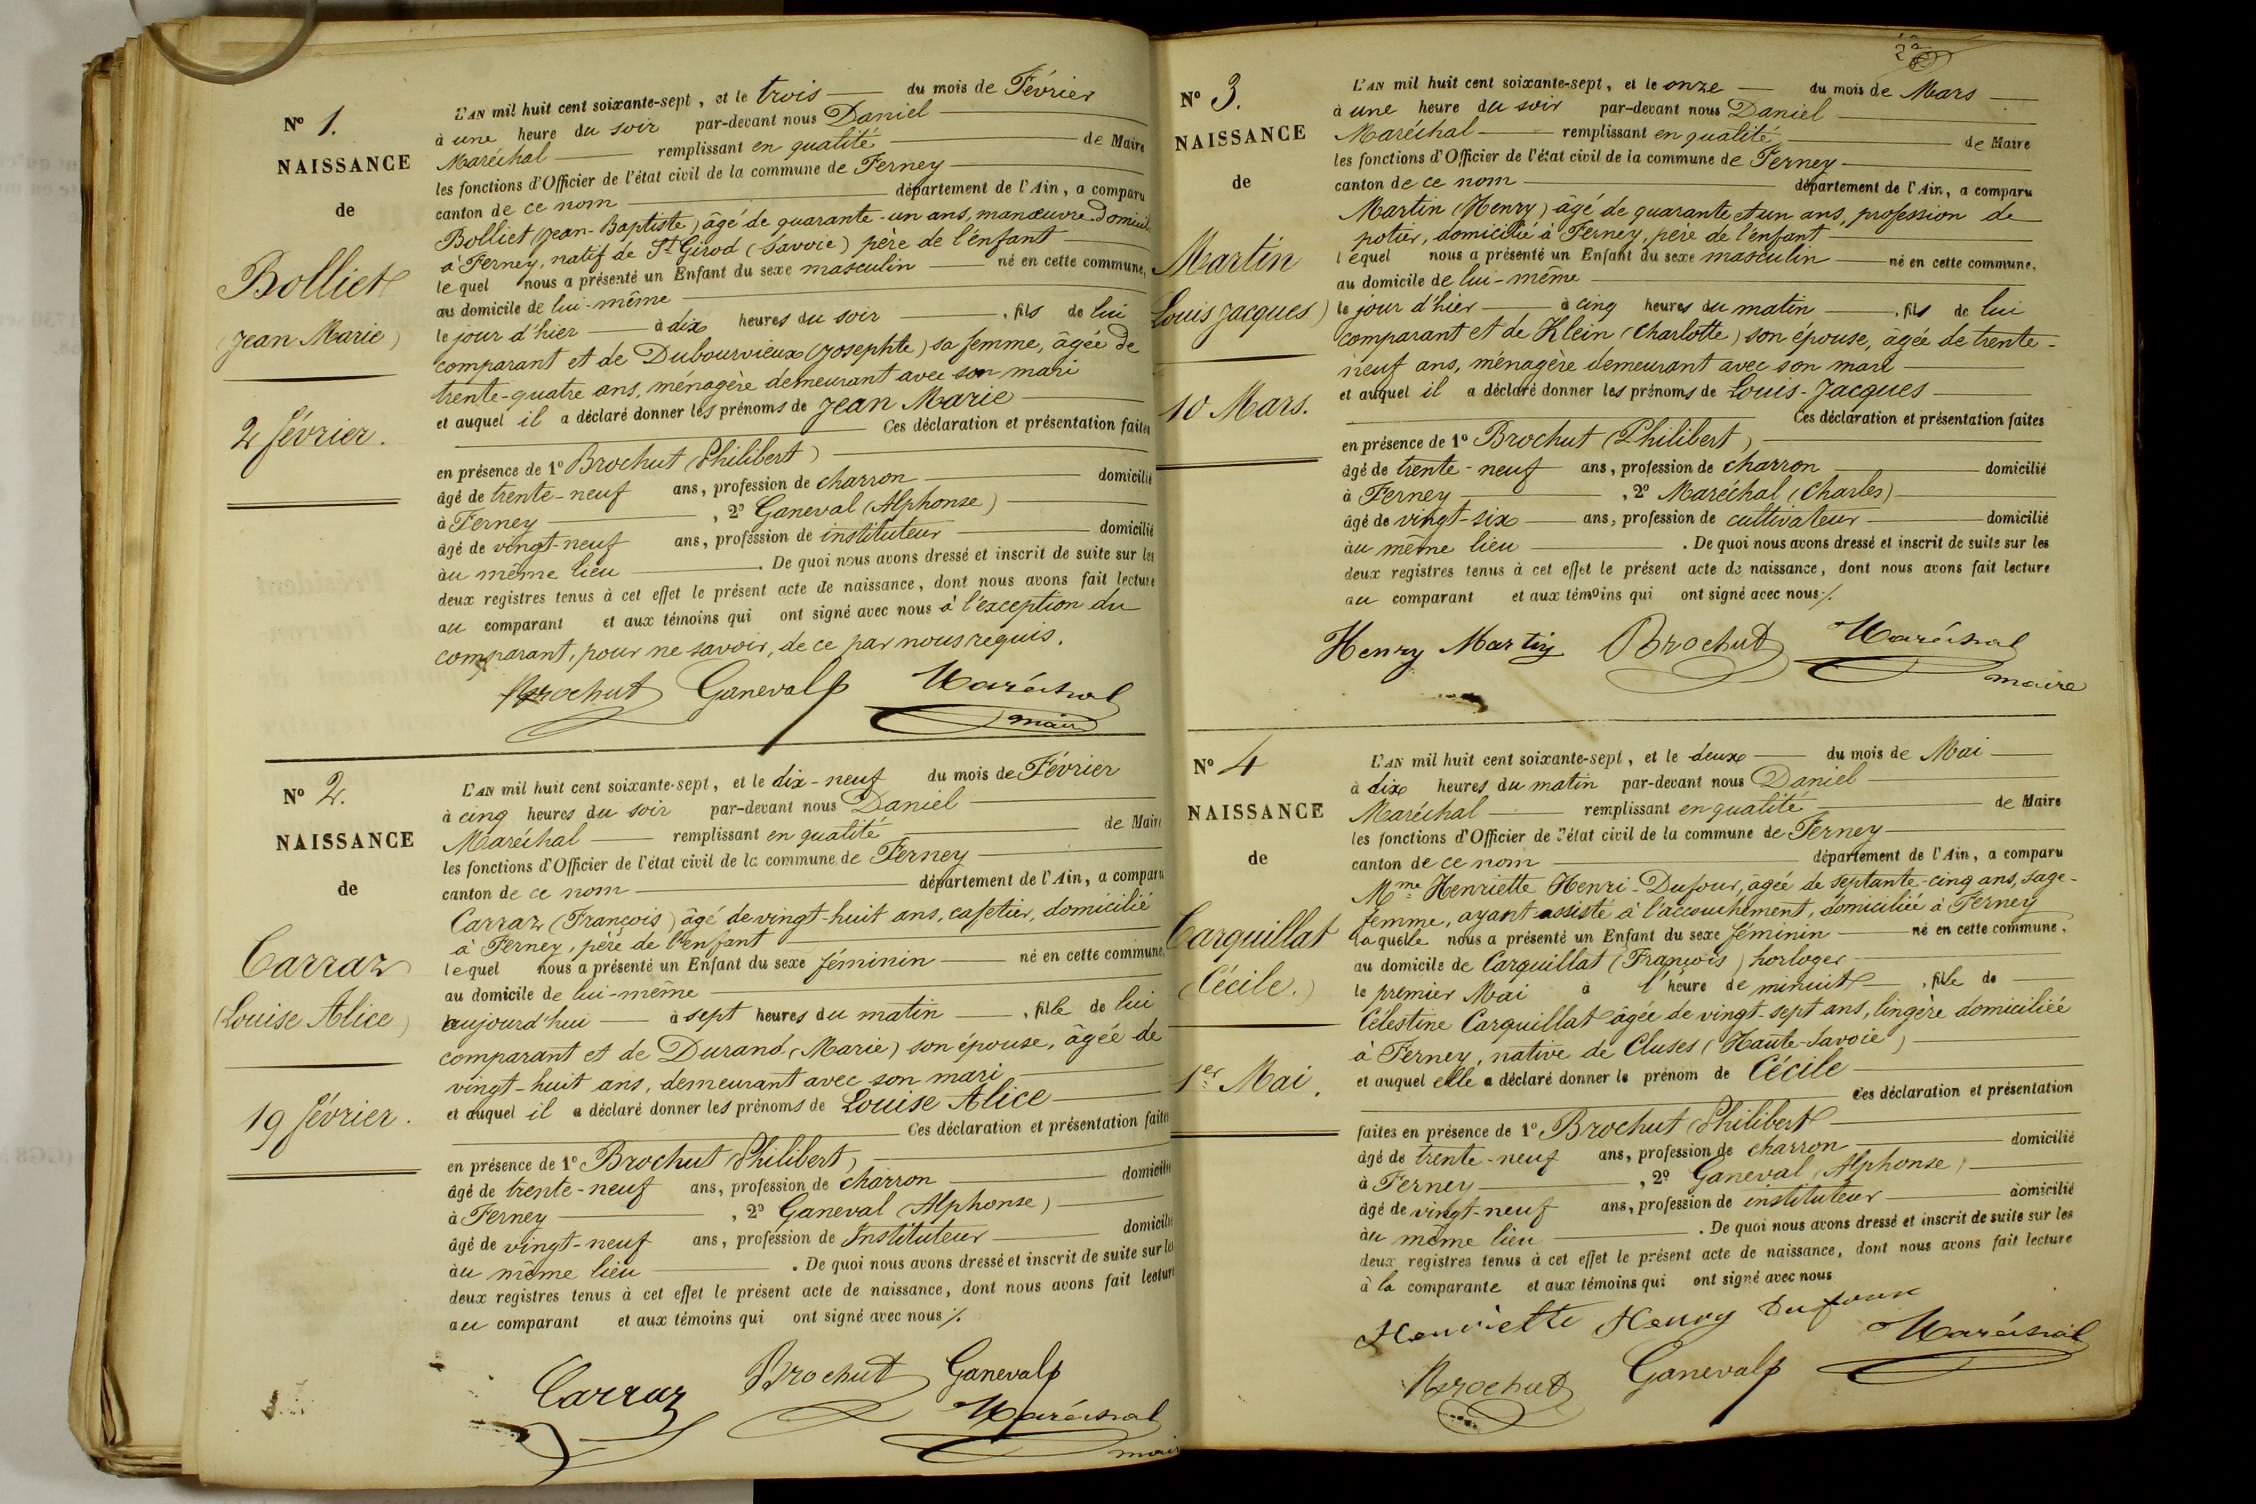 N° 1.
NAISSANCE
de
Bolliet
(Jean Marie)
2 février.
L'AN mil huit cent soixante-sept, et le trois du mois de Février
à une heure du soir par-devant nous Daniel
Maréchal remplissant en qualité de Maire
les fonctions d'Officier de l'état civil de la commune de Ferney
canton de ce nom département de l'Ain, a comparu
Bolliet (Jean-Baptiste) âgé de quarante-un ans, manœuvre domicil
à Ferney, natif de St Girod (Savoie) père de l'énfant
le quel nous a présenté un Enfant du sexe masculin né en cette commune,
au domicile de lui-même
le jour d'hier à dix heures du soir, fils de lui
comparant et de Dubourvieux (Josephte) sa femme, âgée de
trente-quatre ans, ménagère demeurant avec son mari
et auquel il a déclaré donner les prénoms de Jean Marie
Ces déclaration et présentation faites
en présence de 1° Brochut (Philibert)
âgé de trente-neuf ans, profession de charron domicilié
à Ferney, 2° Ganeval (Alphonse)
âgé de vingt-neuf ans, profession de instituteur domicilié
au même lieu. De quoi nous avons dressé et inscrit de suite sur les
deux registres tenus à cet effet le présent acte de naissance, dont nous avons fait lecture
au comparant et aux témoins qui ont signé avec nous à l'éxception du
comparant, pour ne savoir, de ce par nous requis.
Brochut Ganeval Maréchal
maire
N° 2.
NAISSANCE
de
Carraz
(Louise Alice)
19 février.
L'AN mil huit cent soixante-sept, et le dix-neuf du mois de Février
à cinq heures du soir par-devant nous Daniel
Maréchal remplissant en qualité de Maire
les fonctions d'Officier de l'état civil de la commune de Ferney
canton de ce nom département de l'Ain, a comparu
Carraz (François) âgé de vingt-huit ans, cafetier, domicilié
à Ferney, père de l'enfant
lequel nous a présenté un Enfant du sexe féminin né en cette commune,
au domicile de lui-même
aujourd'hui à sept heures du matin, fille de lui
comparant et de Durand (Marie) son épouse, âgée de
vingt-huit ans, demeurant avec son mari
et auquel il a déclaré donner les prénoms de Louise Alice
Ces déclaration et présentation faites
en présence de 1° Brochut (Philibert)
âgé de trente-neuf ans, profession de charron domicilié
à Ferney, 2° Ganeval (Alphonse)
âgé de vingt-neuf ans, profession de Instituteur domicilié
au même lieu. De quoi nous avons dressé et inscrit de suite sur les
deux registres tenus à cet effet le présent acte de naissance, dont nous avons fait lecture
au comparant et aux témoins qui ont signé avec nous ./.
Carraz Brochut Ganeval
Maréchal
maire
N° 3.
NAISSANCE
de
Martin
(Louis Jacques)
10 Mars.
L'AN mil huit cent soixante-sept, et le onze du mois de Mars
à une heure du soir par-devant nous Daniel
Maréchal remplissant en qualité de Maire
les fonctions d'Officier de l'état civil de la commune de Ferney
canton de ce nom département de l'Ain, a comparu
Martin (Henry) âgé de quarante et un ans, profession de
potier, domicilié à Ferney, père de l'enfant
lequel nous a présenté un Enfant du sexe masculin né en cette commune,
au domicile de lui-même
le jour d'hier à cinq heures du matin, fils de lui
comparant et de Klein (Charlotte) son épouse, âgée de trente-
neuf ans, ménagère demeurant avec son mari
et auquel il a déclaré donner les prénoms de Louis-Jacques
Ces déclaration et présentation faites
en présence de 1° Brochut (Philibert)
âgé de trente-neuf ans, profession de charron domicilié
à Ferney, 2° Maréchal (Charles)
âgé de vingt-six ans, profession de cultivateur domicilié
au même lieu. De quoi nous avons dressé et inscrit de suite sur les
deux registres tenus à cet effet le présent acte de naissance, dont nous avons fait lecture
au comparant et aux témoins qui ont signé avec nous ./.
Henry Martin Brochut Maréchal
maire
N° 4
NAISSANCE
de
Carquillat
(Cécile.)
1er Mai.
L'AN mil huit cent soixante-sept, et le deux du mois de Mai
à dix heures du matin par-devant nous Daniel
Maréchal remplissant en qualité de Maire
les fonctions d'Officier de l'état civil de la commune de Ferney
canton de ce nom département de l'Ain, a comparu
Mme Henriette Henri-Dufour, âgée de septante-cinq ans, sage-
femme, ayant assisté à l'accouchement, domiciliée à Ferney
laquelle nous a présenté un Enfant du sexe féminin né en cette commune,
au domicile de Carquillat (François) horloger
le premier Mai à l'heure de minuit, fille de
Célestine Carquillat âgée de vingt-sept ans, lingère domiciliée
à Ferney, native de Cluses (Haute-Savoie)
et auquel elle a déclaré donner le prénom de Cécile
Ces déclaration et présentation
faites en présence de 1° Brochut Philibert
âgé de trente-neuf ans, profession de charron domicilié
à Ferney, 2° Ganeval (Alphonse)
âgé de vingt-neuf ans, profession de instituteur domicilié
au même lieu. De quoi nous avons dressé et inscrit de suite sur les
deux registres tenus à cet effet le présent acte de naissance, dont nous avons fait lecture
à la comparante et aux témoins qui ont signé avec nous
Henriette Henry Dufour
Maréchal
Brochut Ganeval